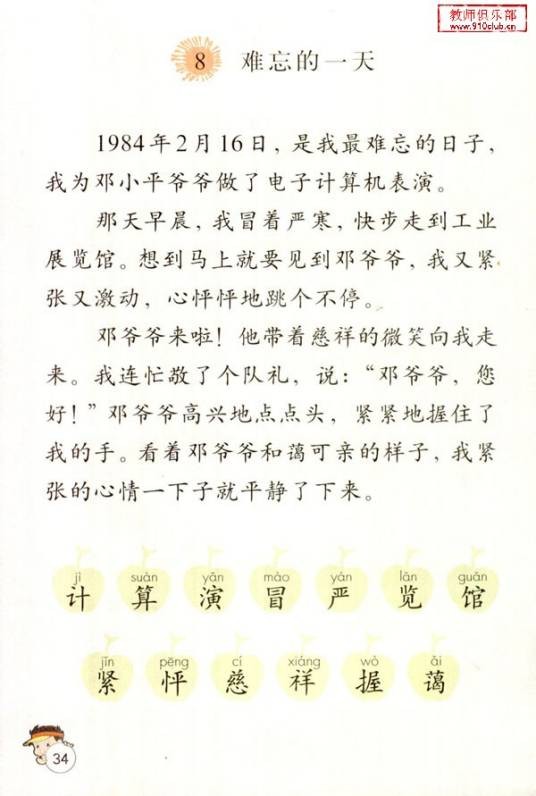 教师俱乐部
www.910club.cn
8 难忘的一天
1984年2月16日，是我最难忘的日子，
我为邓小平爷爷做了电子计算机表演。
那天早晨，我冒着严寒，快步走到工业
展览馆。想到马上就要见到邓爷爷，我又紧
张又激动，心怦怦地跳个不停。
邓爷爷来啦！他带着慈祥的微笑向我走
来。我连忙敬了个队礼，说：“邓爷爷，您
好！”邓爷爷高兴地点点头，紧紧地握住了
我的手。看着邓爷爷和蔼可亲的样子，我紧
张的心情一下子就平静了下来。
jì suàn yǎn mào yán lǎn guǎn
计 算 演 冒 严 览 馆
jǐn pēng cí xiáng wò ǎi
紧 怦 慈 祥 握 蔼
34